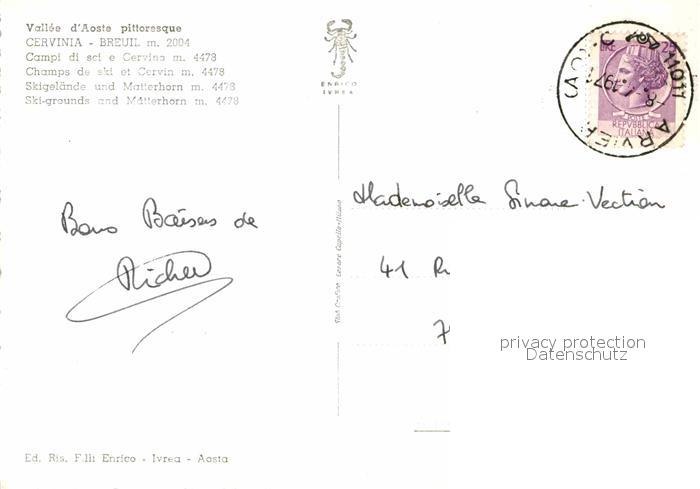 Vallée d'Aoste pittoresque
CERVINIA - BREUIL m. 2004
Campi di sci e Cervino m. 4478
Champs de ski et Cervin m. 4478
Skigelände und Matterhorn m. 4478
Ski-grounds and Matterhorn m. 4478
ENRICO
IVREA
LIRE 25
POSTE
REPVBBLICA
ITALIANA
11011 ARVIER
Bons Baisers de
Mademoiselle Simone Vection
41 R
7
privacy protection
Datenschutz
Ed. Ris. F.lli Enrico - Ivrea - Aosta